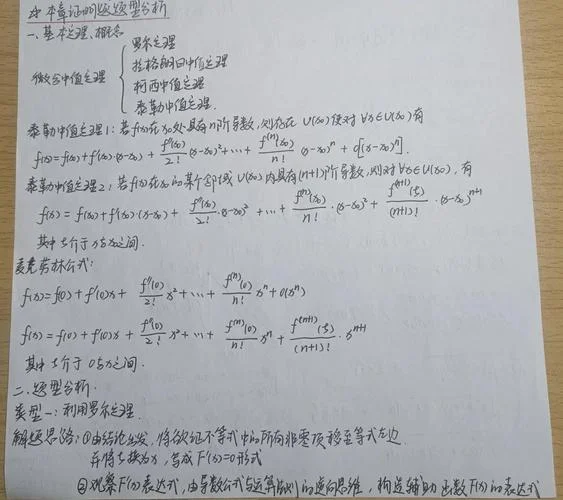 本章证明题题型分析
一、基本定理、概念
微分中值定理
罗尔定理
拉格朗日中值定理
柯西中值定理
泰勒中值定理.
泰勒中值定理1: 若f(x)在x₀处具有n阶导数,则存在U(x₀)使对∀x∈U(x₀)有
f(x)=f(x₀)+f'(x₀)·(x-x₀)+f''(x₀)/2!(x-x₀)²+…+f⁽ⁿ⁾(x₀)/n!(x-x₀)ⁿ+o[(x-x₀)ⁿ].
泰勒中值定理2: 若f(x)在x₀的某个邻域U(x₀)内具有(n+1)阶导数,则对∀x∈U(x₀),有
f(x)=f(x₀)+f'(x₀)·(x-x₀)+f''(x₀)/2!·(x-x₀)²+…+f⁽ⁿ⁾(x₀)/n!·(x-x₀)²+f⁽ⁿ⁺¹⁾(ξ)/(n+1)!·(x-x₀)ⁿ⁺¹
其中ξ介于x与x₀之间.
麦克劳林公式:
f(x)=f(0)+f'(0)x+f''(0)/2!x²+…+f⁽ⁿ⁾(0)/n!xⁿ+o(xⁿ)
f(x)=f(0)+f'(0)x+f''(0)/2!x²+…+f⁽ⁿ⁾(0)/n!xⁿ+f⁽ⁿ⁺¹⁾(ξ)/(n+1)!·xⁿ⁺¹
其中ξ介于0与x之间.
二、题型分析.
类型一: 利用罗尔定理.
解题思路: ①由结论出发,将欲证不等式中的所有非零项移至等式左边
并将ξ换为x,写成F'(x)=0形式
②观察F'(x)表达式,由导数公式与运算法则的逆向思维,构造辅助函数F(x)的表达式